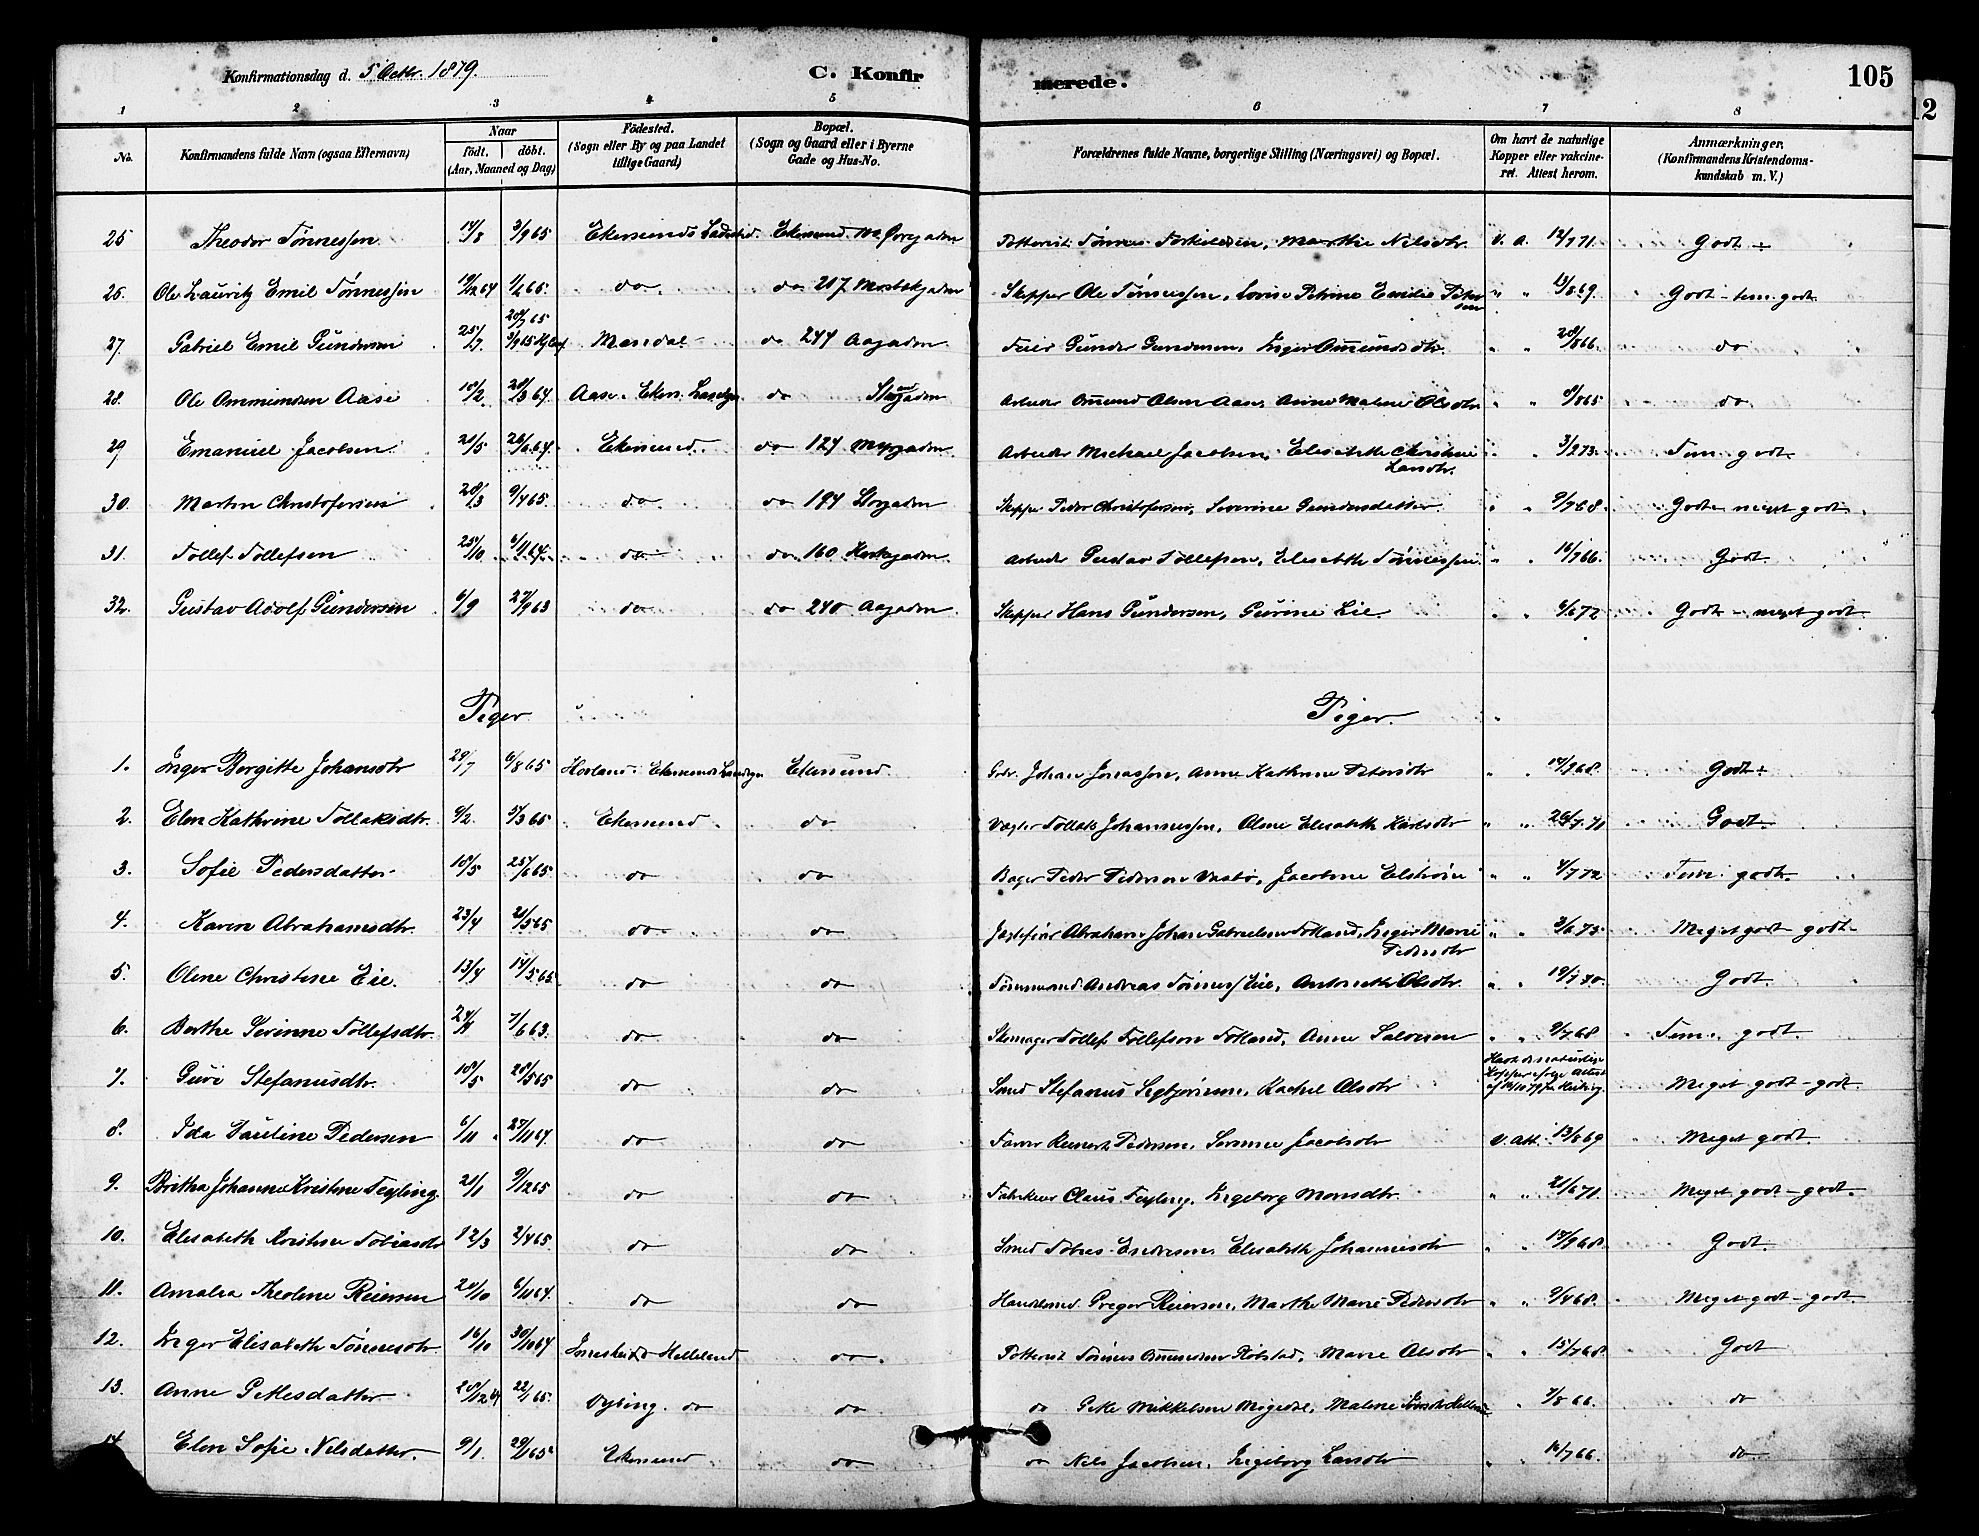 Konfirmationsdag d. 5 Octbr. 1879.
C. Konfirmerede.
105
12
1 2 3 4 5 6 7 8
No. Konfirmandens fulde Navn (ogsaa Efternavn) Naar födt. döbt. (Aar, Maaned og Dag) Födested. (Sogn eller By og paa Landet tillige Gaard) Bopæl. (Sogn og Gaard eller i Byerne Gade og Hus-No. Forældrenes fulde Navne, borgerlige Stilling (Næringsvei) og Bopæl. Om havt de naturlige Kopper eller vakcineret. Attest herom. Anmærkninger. (Konfirmandens Kristendomskundskab m. V.)
25 Theodor Tønnessen 14/8 3/9 65 Ekersunds Ladested Ekersund Tønnes Torkildsen, Marthe Nilsdtr. v. a. 12/7 71. Godt
26. Ole Lauritz Emil Tønnessen 64 do. do 217 Skipper Ole Tønnessen, Lovise Petrine Emilie " " 13/8 69. Godt - tem. godt
27 Gabriel Emil Gundersen 25/7 Mandal do 244 Aagaden Feier Gunder Gundersen, Inger Omundsdtr. " " 28/8 66. do
28. Ole Ommundsen Aase 10/2 28/3 64. Aase. Ekers. Landsogn do Arbeider Omund Olsen Aase, Anne Malene Olsdtr. " " 9/8 65 do
29 Emanuel Jacobsen 21/5 26/6 64. Ekersund do 124 Myrgaden Arbeider Michael Jacobsen, Elisabeth Christine Larsdtr. " 3/2 73. Tem. godt.
30. Martin Christofersen 28/3 9/4 65. do do 194 Storgaden Skipper Peder Christofersen, Severine Gundersdatter " " 9/7 68. Godt - meget godt.
31. Tollef Tollefsen 25/10 6/11 64. do do 160 Kirkegaden Arbeider Gustav Tollefsen, Elisabeth Tønnessen " " 16/7 66. Godt.
32. Gustav Adolf Gundersen 6/9 27/9 63 do do 240 Aagaden Skipper Hans Gundersen, Gurine Lie. " " 4/6 72 Godt - meget godt.
Piger Piger.
1. Inger Bergitte Johansdtr 29/7 6/8 65 Hovland i Ekersunds Landsogn Ekersund. Johan Jonassen, Anne Kathrine Petersdtr " " 14/9 68. Godt
2. Elen Kathrine Tollaksdtr. 4/2. 5/3 65 Ekersund. do Vægter Tollak Johannessen, Olene Elisabeth Karlsdtr " " 26/7 71 Godt.
3. Sofie Pedersdatter 10/5 25/6 65. do do Bager Peder Pedersen Vasbø, Jacobine Elertsine " " 4/7 72 Tem. godt.
4. Karen Abrahamsdtr. 23/4 21/5 65 do do Abraham Johan Gabrielsen Folland, Inger Marie Pedersdtr " " 3/6 75 Meget godt - godt.
5. Olene Christine Eie. 13/4 14/5 65. do do Tømmermand Andreas Tønnes Eie, Antonette Olsdtr. " " 19/7 70. Godt.
6. Berthe Serinne Tollefsdtr. 24/4 7/6 63. do do Stenhuger Tollef Tollefsen Folland, Anne Salvesen " " 9/7 68 Tem. godt.
7. Guri Stefanusdtr. 10/5 28/5 65 do do Smed Stefanus Sigbjørnsen, Rachel Olsdtr Havt de naturlige Kopper ifølge Attest af Meget godt - godt.
8. Ida Pauline Pedersen 6/11 27/11 64. do do Farver Reinert Pedersen, Serine Jacobsdtr v. att. 13/8 69 Meget godt.
9. Britha Johanne Kristine Feyling. 21/1 9/12 65 do do Claus Feyling, Ingeborg Monsdtr. " " 21/6 71. Meget godt - godt.
10. Elisabeth Kristine Tobiasdtr 12/3 2/4 65. do do Smed Tobias Endresen. Elisabeth Johannesdtr " " 14/9 68. Godt.
11. Amalia Theoline Reiersen 20/10 6/11 64. do do Handlende Greger Reiersen, Marthe Marie Pedersdtr " " 9/4 68. Meget godt - godt.
12. Inger Elisabeth Tønnesdtr. 16/10 30/10 64 Helleland do. Tønnes Omundsen Røbstad, Marie Olsdtr " " 15/7 68. Godt
13. Anne Petlesdatter 28/12 64 22/1 65. Øgling. do do do Petle Mikkelsen Migedal, Malene " 7/8 66. do
14 Elen Sofie Nilsdatter. 9/1. 29/1 65 Ekersund do do Nils Jacobsen, Ingeborg Larsdtr " 16/7 66. do